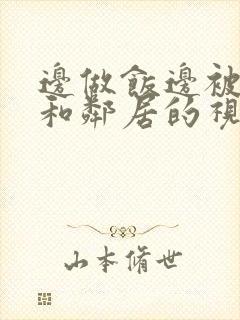 邊做飯邊被
和鄰居的視
山本脩世